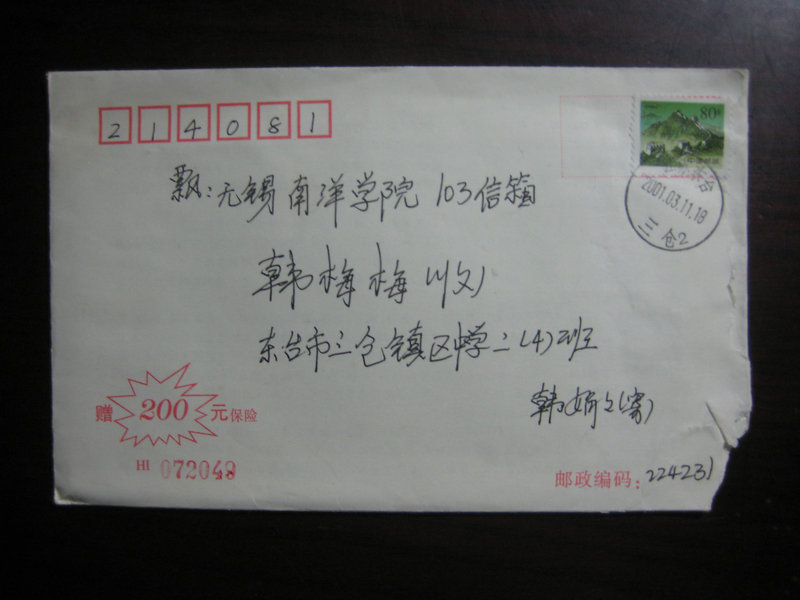 214081
80分
中国邮政
飘:无锡南洋学院 103信箱
东台
2001.03.11.18
三仓2
韩梅梅(收)
东台市三仓镇区中学二(4)班
赠 200 元保险
韩娟(寄)
HI 072049
邮政编码:224231